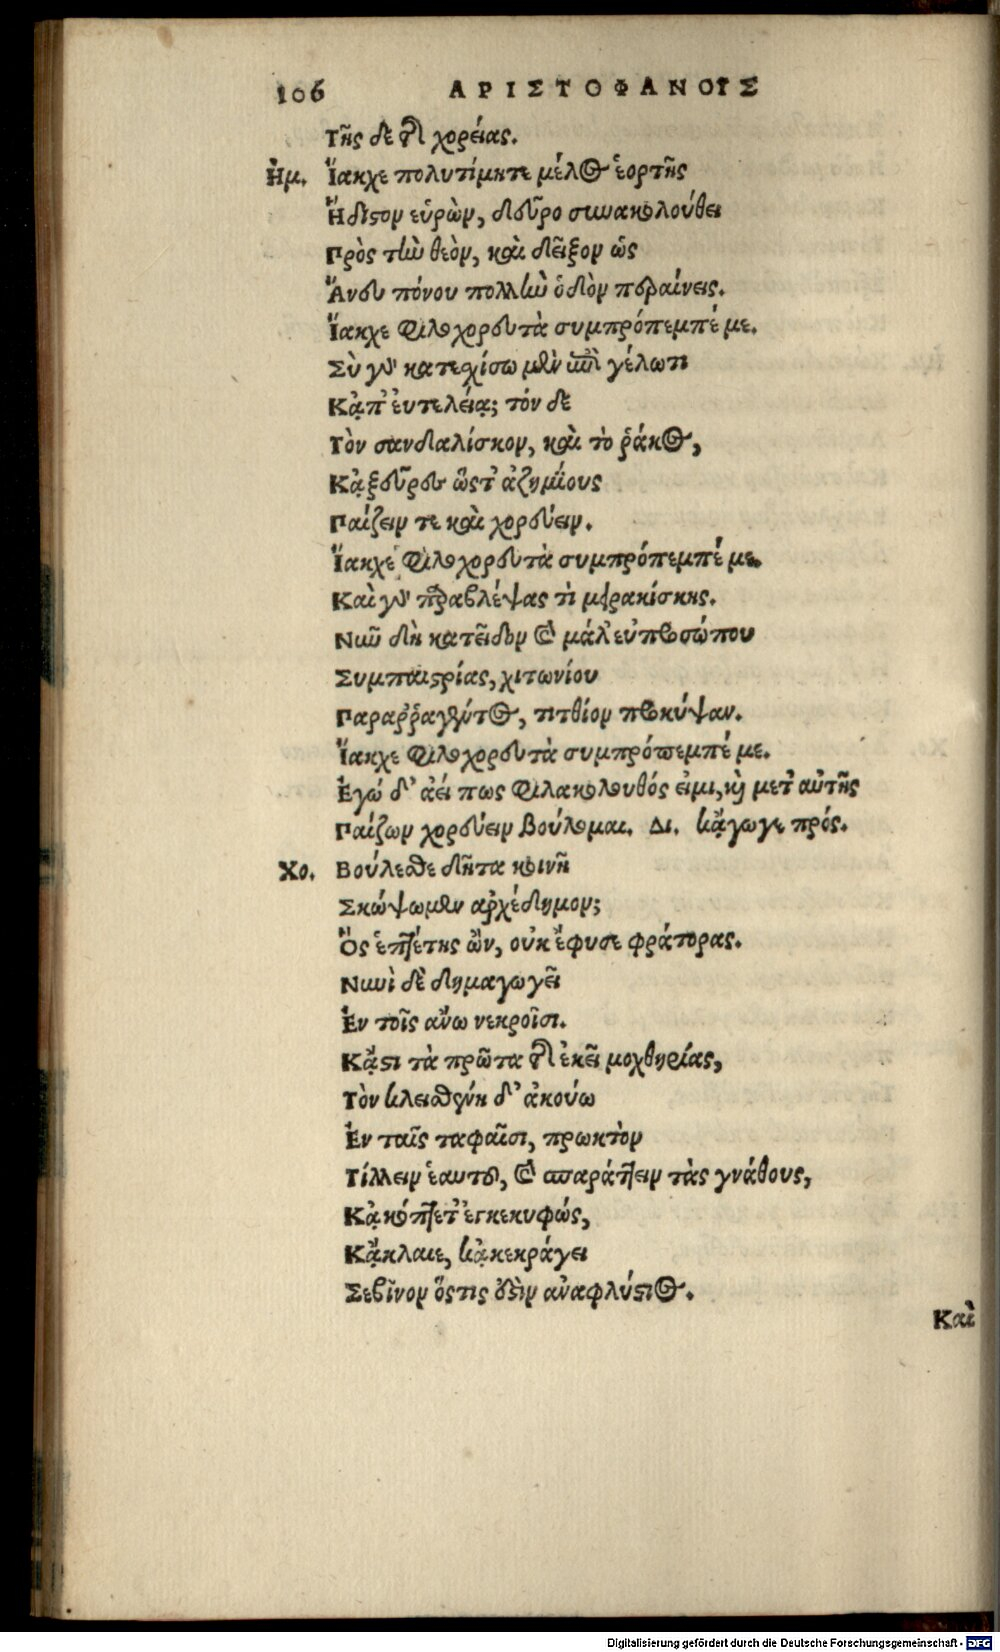 106 ΑΡΙΣΤΟΦΑΝΟΥΣ
Τῆς δε τῆ χορείας.
Ἡμ. Ἴακχε πολυτίμητε μέλος ἑορτῆς
Ἥδιστον εὑρὼν, δεῦρο συνακολούθει
Πρὸς τὴν θεὸν, καὶ δεῖξον ὡς
Ἄνευ πόνου πολλὴν ὁδὸν περαίνεις.
Ἴακχε φιλοχορευτὰ συμπρόπεμπέ με.
Σὺ γὰρ κατεχίσω μὲν ἐπὶ γέλωτι
Κᾀπ' ἐυτελείᾳ; τόν δε
Τὸν σανδαλίσκον, καὶ τὸ ῥάκος,
Κᾀξεῦρου ὥστ' ἀζημίους
Παίζειν τε καὶ χορεύειν.
Ἴακχέ φιλοχορευτὰ συμπρόπεμπέ με.
Καὶ γὰρ παραβλέψας τὶ μειρακίσκης.
Νῦν δὴ κατεῖδον καὶ μάλ' εὐπροσώπου
Συμπαιστρίας, χιτωνίου
Παραῤῥαγέντος, τιτθίον προκύψαν.
Ἴακχε φιλοχορευτὰ συμπρόπεμπέ με.
Ἐγώ δ' ἀεί πως φιλακόλουθός εἰμι, καὶ μετ' αὐτῆς
Παίζων χορεύειν βούλομαι. Δι. κᾄγωγε πρός.
Χο. Βούλεσθε δῆτα κοινῇ
Σκώψωμεν ἀρχέδημον;
Ὃς ἑπτέτης ὢν, οὐκ ἔφυσε φράτορας.
Νυνὶ δὲ δημαγωγεῖ
Ἐν τοῖς ἄνω νεκροῖσι.
Κᾄστι τὰ πρῶτα τῆς ἐκεῖ μοχθηρίας,
Τὸν κλεισθένη δ' ἀκούω
Ἐν ταῖς ταφαῖσι, πρωκτὸν
Τίλλειν ἑαυτοῦ, καὶ σπαράττειν τὰς γνάθους,
Κᾀκόπτετ' ἐγκεκυφώς,
Κᾄκλαιε, κᾀκεκράγει
Σεβῖνον ὅστις ἐστὶν ἀναφλύστιος.
Καὶ
Digitalisierung gefördert durch die Deutsche Forschungsgemeinschaft - DFG